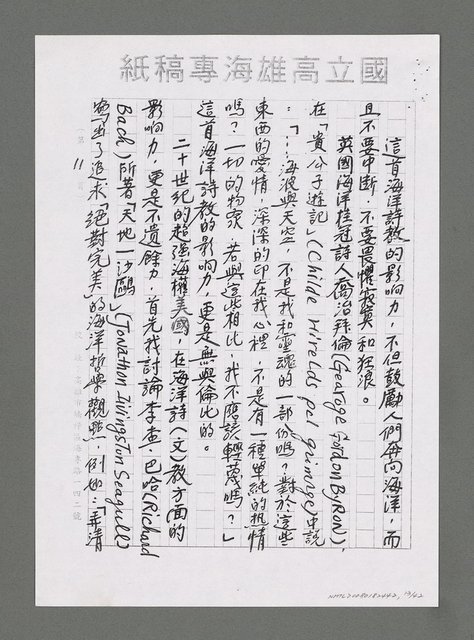 國立高雄海專稿紙
這首海洋詩教的影响力，不但鼓勵人們奔向海洋，而
且不要中断，不要畏懼寂寞和狂浪。
英國海洋桂冠詩人喬治拜倫(George Gordon ByRoN)，
在「貴公子遊記」(Childe Hirelds pel grimrge)中說
：「…海浪與天空，不是我和靈魂的一部份嗎？對於這些
東西的愛情，深深的印在我心裡，不是有一種單純的热情
嗎？一切的物象，若與這些相比，我不應該輕蔑嗎？」
這首海洋詩教的影响力，更是無與倫比的。
二十世紀的超強海權美國，在海洋詩（文）教方面的
影响力，更是不遺餘力，首先我討論李查·巴哈(Richard
Bach)所著「天地一沙鷗」(Jonathan Livingston Seagull)
寫出了追求「絕對完美」的海洋哲學觀點，例如：「弄清
第 11 頁
NMTL20080182442, 13/42